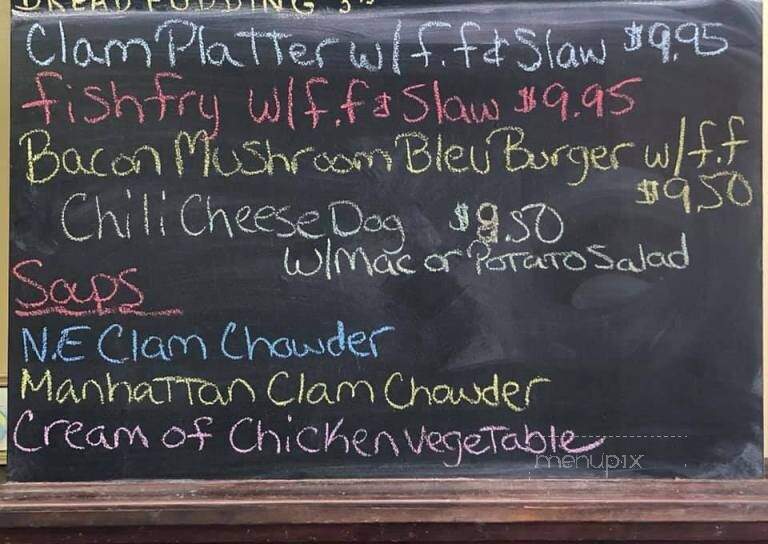 BREAD PUDDING
Clam Platter w/f.f & Slaw $9.95
fish fry w/f.f & Slaw $9.95
Bacon Mushroom Bleu Burger w/f.f
$9.50
Chili Cheese Dog $9.50
w/Mac or Potato Salad
Soups
N.E Clam Chowder
Manhattan Clam Chowder
Cream of Chicken Vegetable
menupix